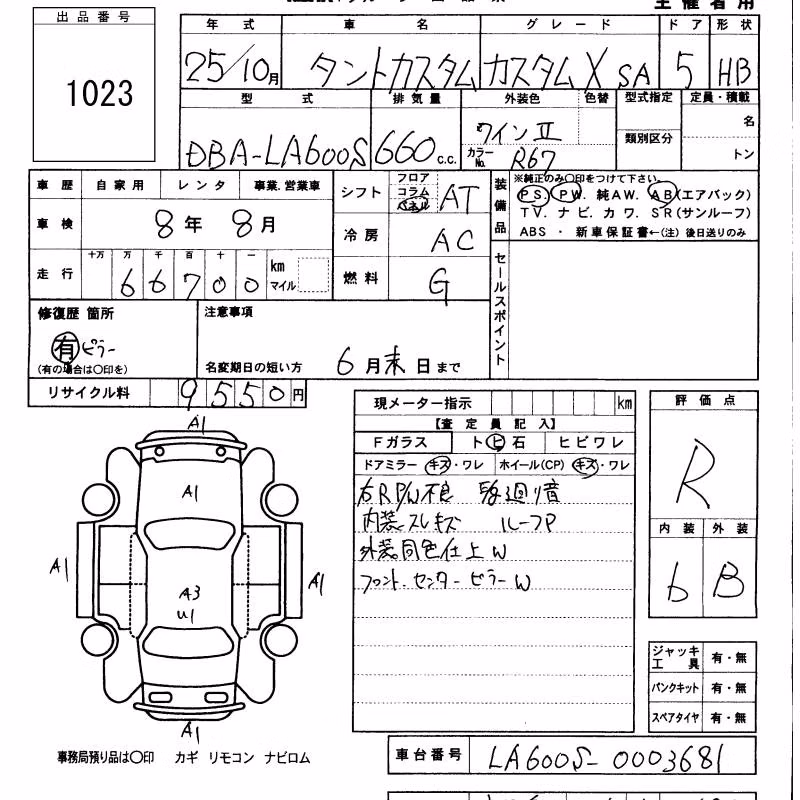 主催者用
出品番号
1023
年式 車名 グレード ドア 形状
25/10月 タントカスタム カスタムX SA 5 HB
型式 排気量 外装色 色替 型式指定 定員・積載
DBA-LA600S 660c.c. ワインⅡ 類別区分 名
カラーNo. R67 トン
車歴 自家用 レンタ 事業.営業車 シフト フロア コラム パネル AT
装備品 ※純正のみ○印をつけて下さい。
PS. PW. 純AW. AB(エアバック)
TV. ナビ. カワ. SR(サンルーフ)
ABS ・ 新車保証書←(注)後日送りのみ
車検 8年 8月 冷房 AC
走行 十万 万 千 百 十 一 km マイル
66700 燃料 G
セールスポイント
修復歴 箇所 注意事項
有 ピラー
(有の場合は○印を) 名変期日の短い方 6月末日まで
リサイクル料 9550円
現メーター指示 km
【査定員記入】
Fガラス ト ヒ 石 ヒビワレ
ドアミラー キズ・ワレ ホイール(CP) キズ・ワレ
右RP/W不良 
内装スレキズ ルーフP
外装同色仕上W
フロント.センターピラーW
A1
A1
A1
A1
A3
U1
A1
評価点
R
内装 外装
6 B
ジャッキ工具 有・無
パンクキット 有・無
スペアタイヤ 有・無
事務局預り品は○印 カギ リモコン ナビロム
車台番号 LA600S-0003681